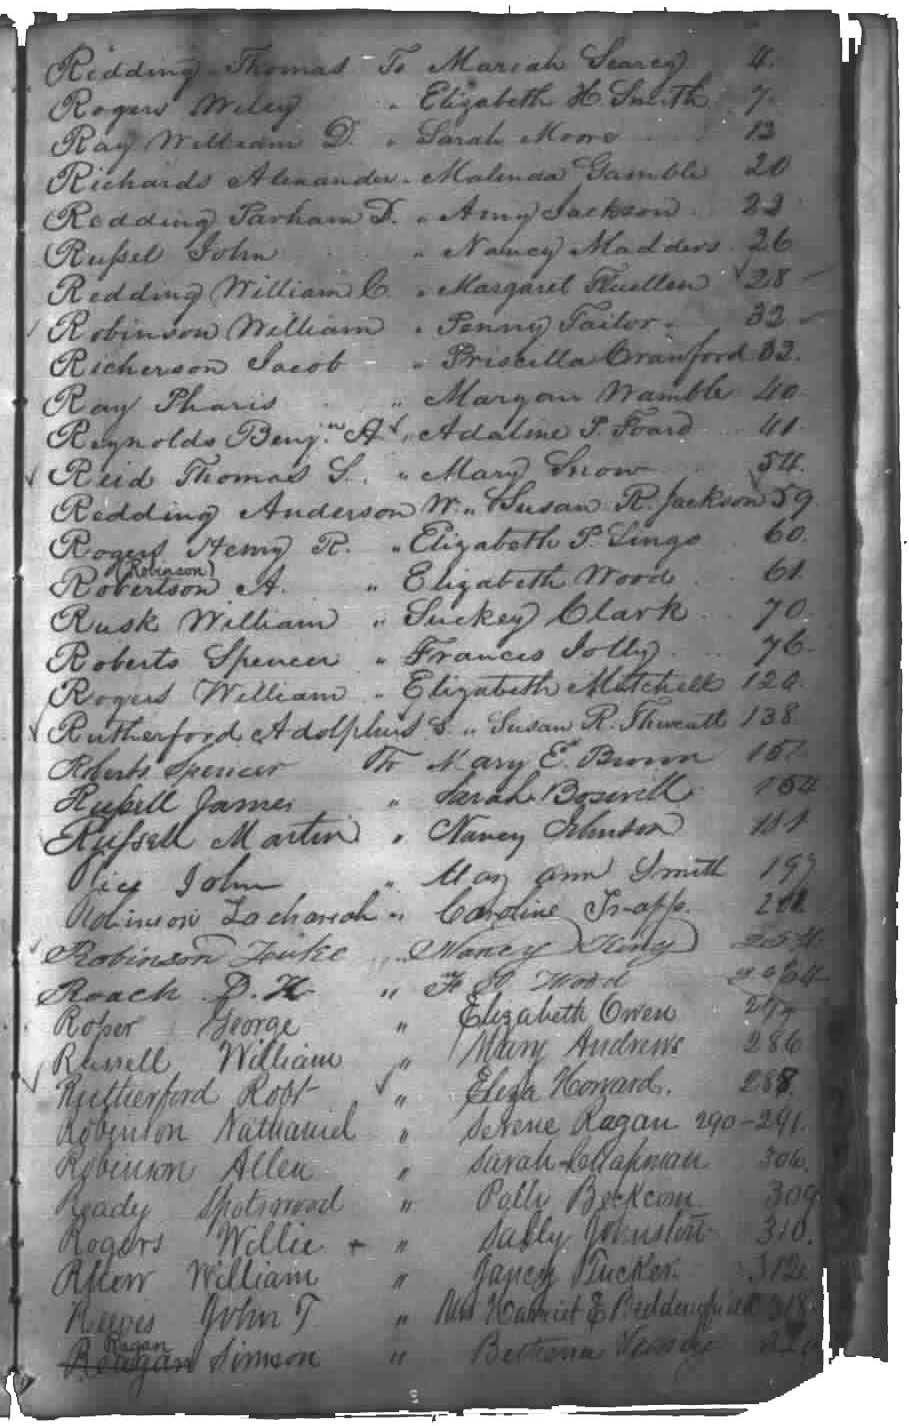 Redding Thomas To Mariah Searcy 4.
Rogers Wiley " Elizabeth H. Smith 7.
Ray William D. " Sarah Moore 13
Richards Alexander " Malinda Gamble 20
Redding Parham D. " Amy Jackson 22
Russel John " Nancy Madders 26
Redding William C. " Margaret Fluellen 28
Robinson William " Penny Tailor 32
Richerson Jacob " Priscilla Crawford 32.
Ray Pharis " Margan Wamble 40
Reynolds Benjn. A. " Adaline P. Foard 41
Reid Thomas S. " Mary Snow 54.
Redding Anderson W. " Susan R. Jackson 59
Rogers Henry R. " Elizabeth P. Lingo 60.
(Robinson)
Robertson A. " Elizabeth Wood 61
Rusk William " Suckey Clark 70
Roberts Spencer " Frances Jolly 76
Rogers William " Elizabeth Mitchell 120.
Rutherford Adolphus S. " Susan R. Thweatt 138
Roberts Spencer To Mary E. Brown 151
Russell James " Sarah Boswell 154
Russell Martin " Nancy Johnson
John " May ann Smith 197
Robinson Zachariah " Caroline Trapp.
Robinson Luke " Nancy King 254
Roach D. H. " Wood
Roper George " Elizabeth Owen
Russell William " Mary Andrews 286
Rutherford Robt " Eliza Howard. 288
Robinson Nathaniel " Serene Ragan 290-291.
Robinson Allen " Sarah Chapman 306.
Ready Spotswood " Polly Beckcom 309
Rogers Willie " Sally Johnston 310.
William " Tucker. 312
Reeves John T " Mrs Harriet E 318
Ragan
Reagan Simeon "